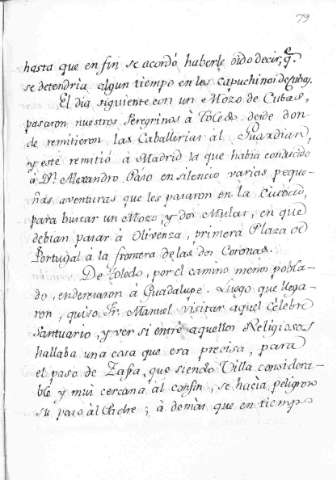 79
hasta que en fin se acordó haberle oido decir, q.e
se detendria algun tiempo en los capuchinos de
El dia siguiente con un Mozo de Cubas,
pasaron nuestros Peregrinos à Toledo, desde don-
de remitieron las Caballerias al Guardian,
y este remitió à Madrid la que habia conducido
à Dn. Alexandro. Paso en silencio varias peque-
ñas aventuras que les pasaron en la
para buscar un Mozo, y dos Mulas, en que
debian pasar à Olivenza, primera Plaza de
Portugal à la frontera de las dos Coronas.
De Toledo, por el camino menos pobla-
do, enderezaron à Guadalupe. Luego que llega-
ron, quiso Fr. Manuel visitar aquel Celebre
Santuario, y ver si entre aquellos Religiosos
hallaba una cosa que era precisa, para
el paso de Zafra, que siendo Villa considera-
ble y mùi cercana al confin, se hacia peligroso
su paso àl Padre; à demàs que en tiempo